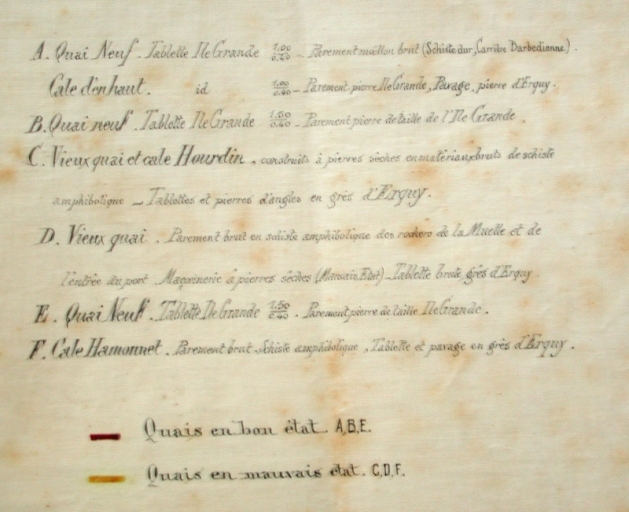 A. Quai Neuf. Tablette Ile Grande 1.00/0.40 _ Parement moellon brut (Schiste dur, Carrière Darbedienne).
Cale d'enhaut. id 1.00/0.40 _ Parement pierre Ile Grande, Pavage, pierre d'Erquy.
B. Quai neuf. Tablette Ile Grande 1.50/0.40 _ Parement pierre de taille de l'Ile Grande.
C. Vieux quai et cale Hourdin, construits à pierres sèches en matériaux bruts de schiste
amphibolique _ Tablettes et pierres d'angles en grès d'Erquy.
D. Vieux quai. Parement brut en schiste amphibolique des rochers de la Muette et de
l'entrée du port Maçonnerie à pierres sèches (Mauvais État) _ Tablette brute, grès d'Erquy.
E. Quai Neuf. Tablette Ile Grande 1.50/0.40. Parement pierre de taille Ile Grande.
F. Cale Hamonnet. Parement brut, Schiste amphibolique, Tablette et pavage en grès d'Erquy.
Quais en bon état. A,B,E.
Quais en mauvais état. C,D,F.